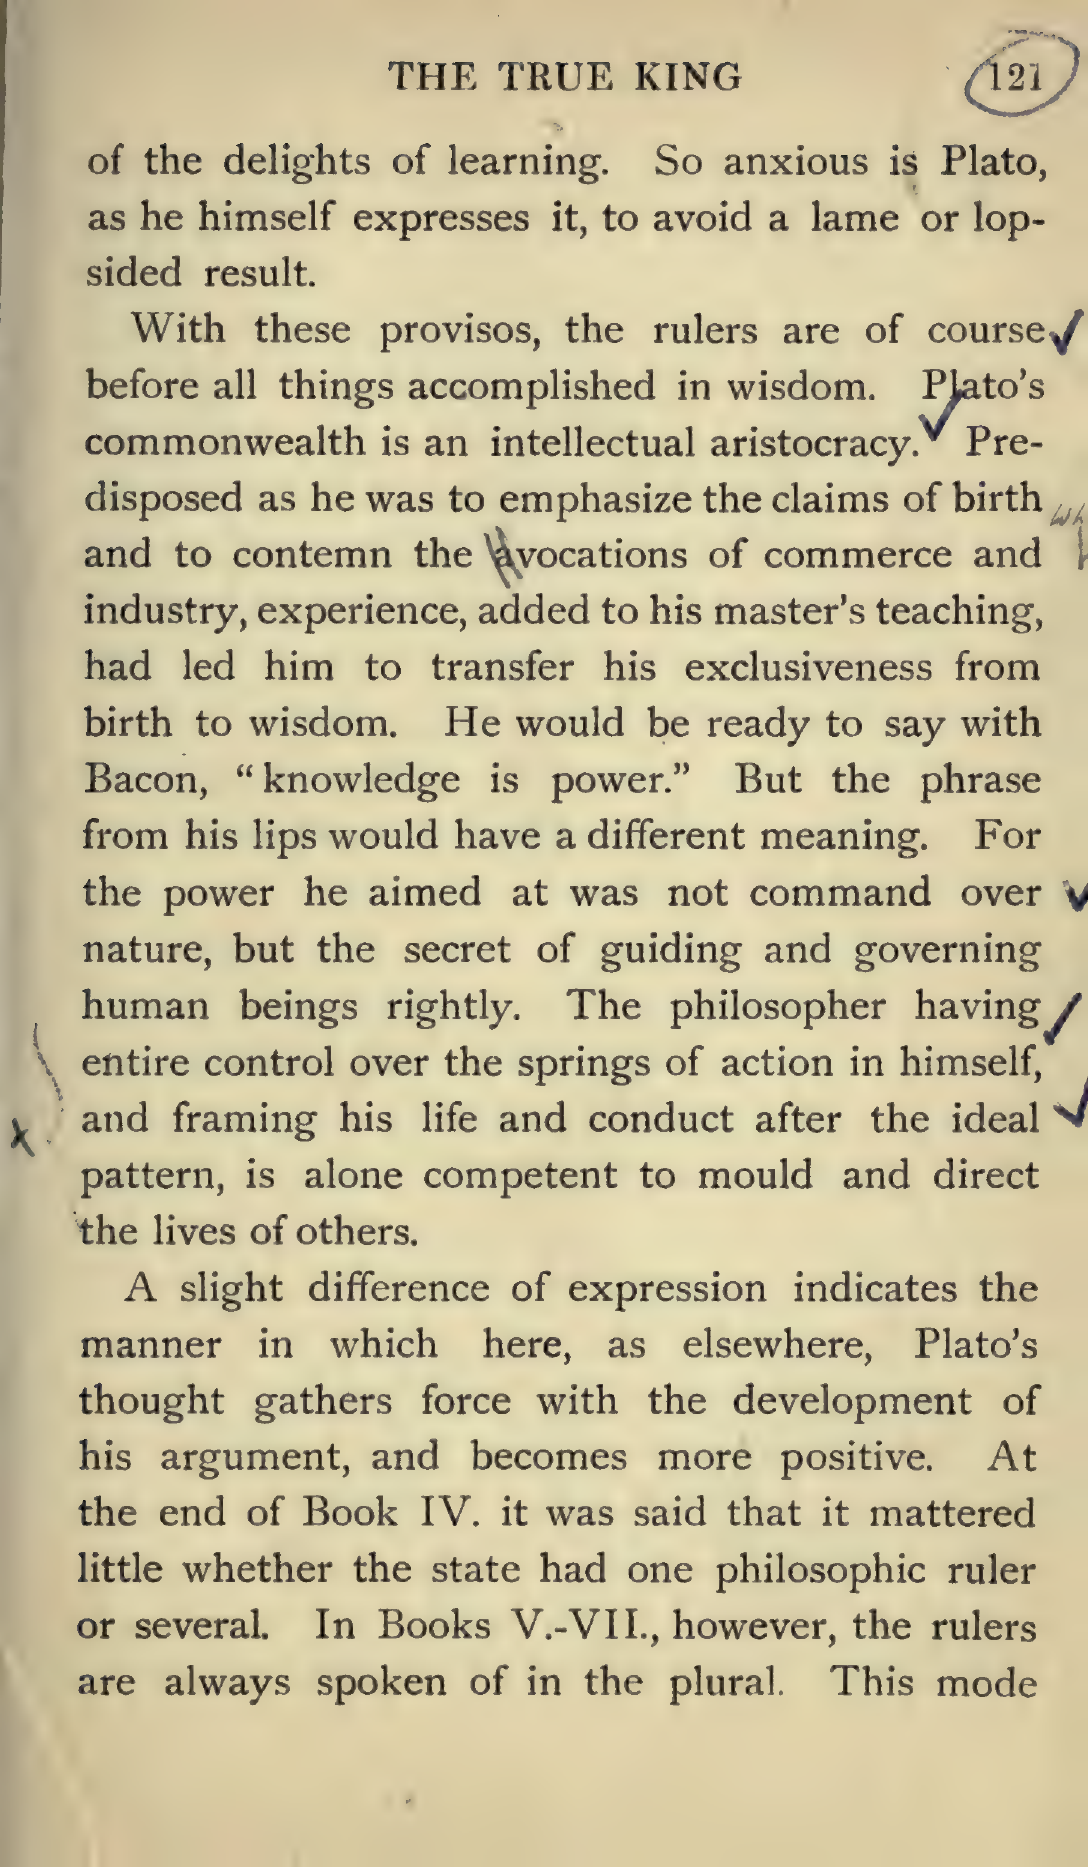 THE TRUE KING 121
of the delights of learning. So anxious is Plato,
as he himself expresses it, to avoid a lame or lop-
sided result.
With these provisos, the rulers are of course
before all things accomplished in wisdom. Plato's
commonwealth is an intellectual aristocracy. Pre-
disposed as he was to emphasize the claims of birth
and to contemn the avocations of commerce and
industry, experience, added to his master's teaching,
had led him to transfer his exclusiveness from
birth to wisdom. He would be ready to say with
Bacon, “knowledge is power.” But the phrase
from his lips would have a different meaning. For
the power he aimed at was not command over
nature, but the secret of guiding and governing
human beings rightly. The philosopher having
entire control over the springs of action in himself,
and framing his life and conduct after the ideal
pattern, is alone competent to mould and direct
the lives of others.
A slight difference of expression indicates the
manner in which here, as elsewhere, Plato's
thought gathers force with the development of
his argument, and becomes more positive. At
the end of Book IV. it was said that it mattered
little whether the state had one philosophic ruler
or several. In Books V.-VII., however, the rulers
are always spoken of in the plural. This mode